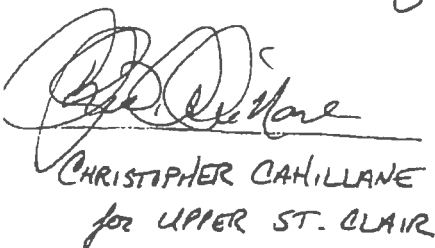 CHRISTOPHER CAHILLANE
for UPPER ST. CLAIR